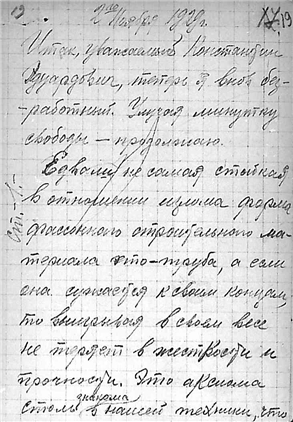 19
2го Ноября 1929г. XX/19
Итак, уважаемый Константин
Эдуардович, теперь я вновь без-
-работный. Улучая минутку
свободы – продолжаю.
Едвали не самая стойкая
в отношении изгиба форма
фассонного строительного ма-
териала это – труба, а если
она сужается к своим концам,
то выигрывая в своем весе
не теряет в жесткости и
прочности. Это аксиома
знакома
столь в нашей технике, что